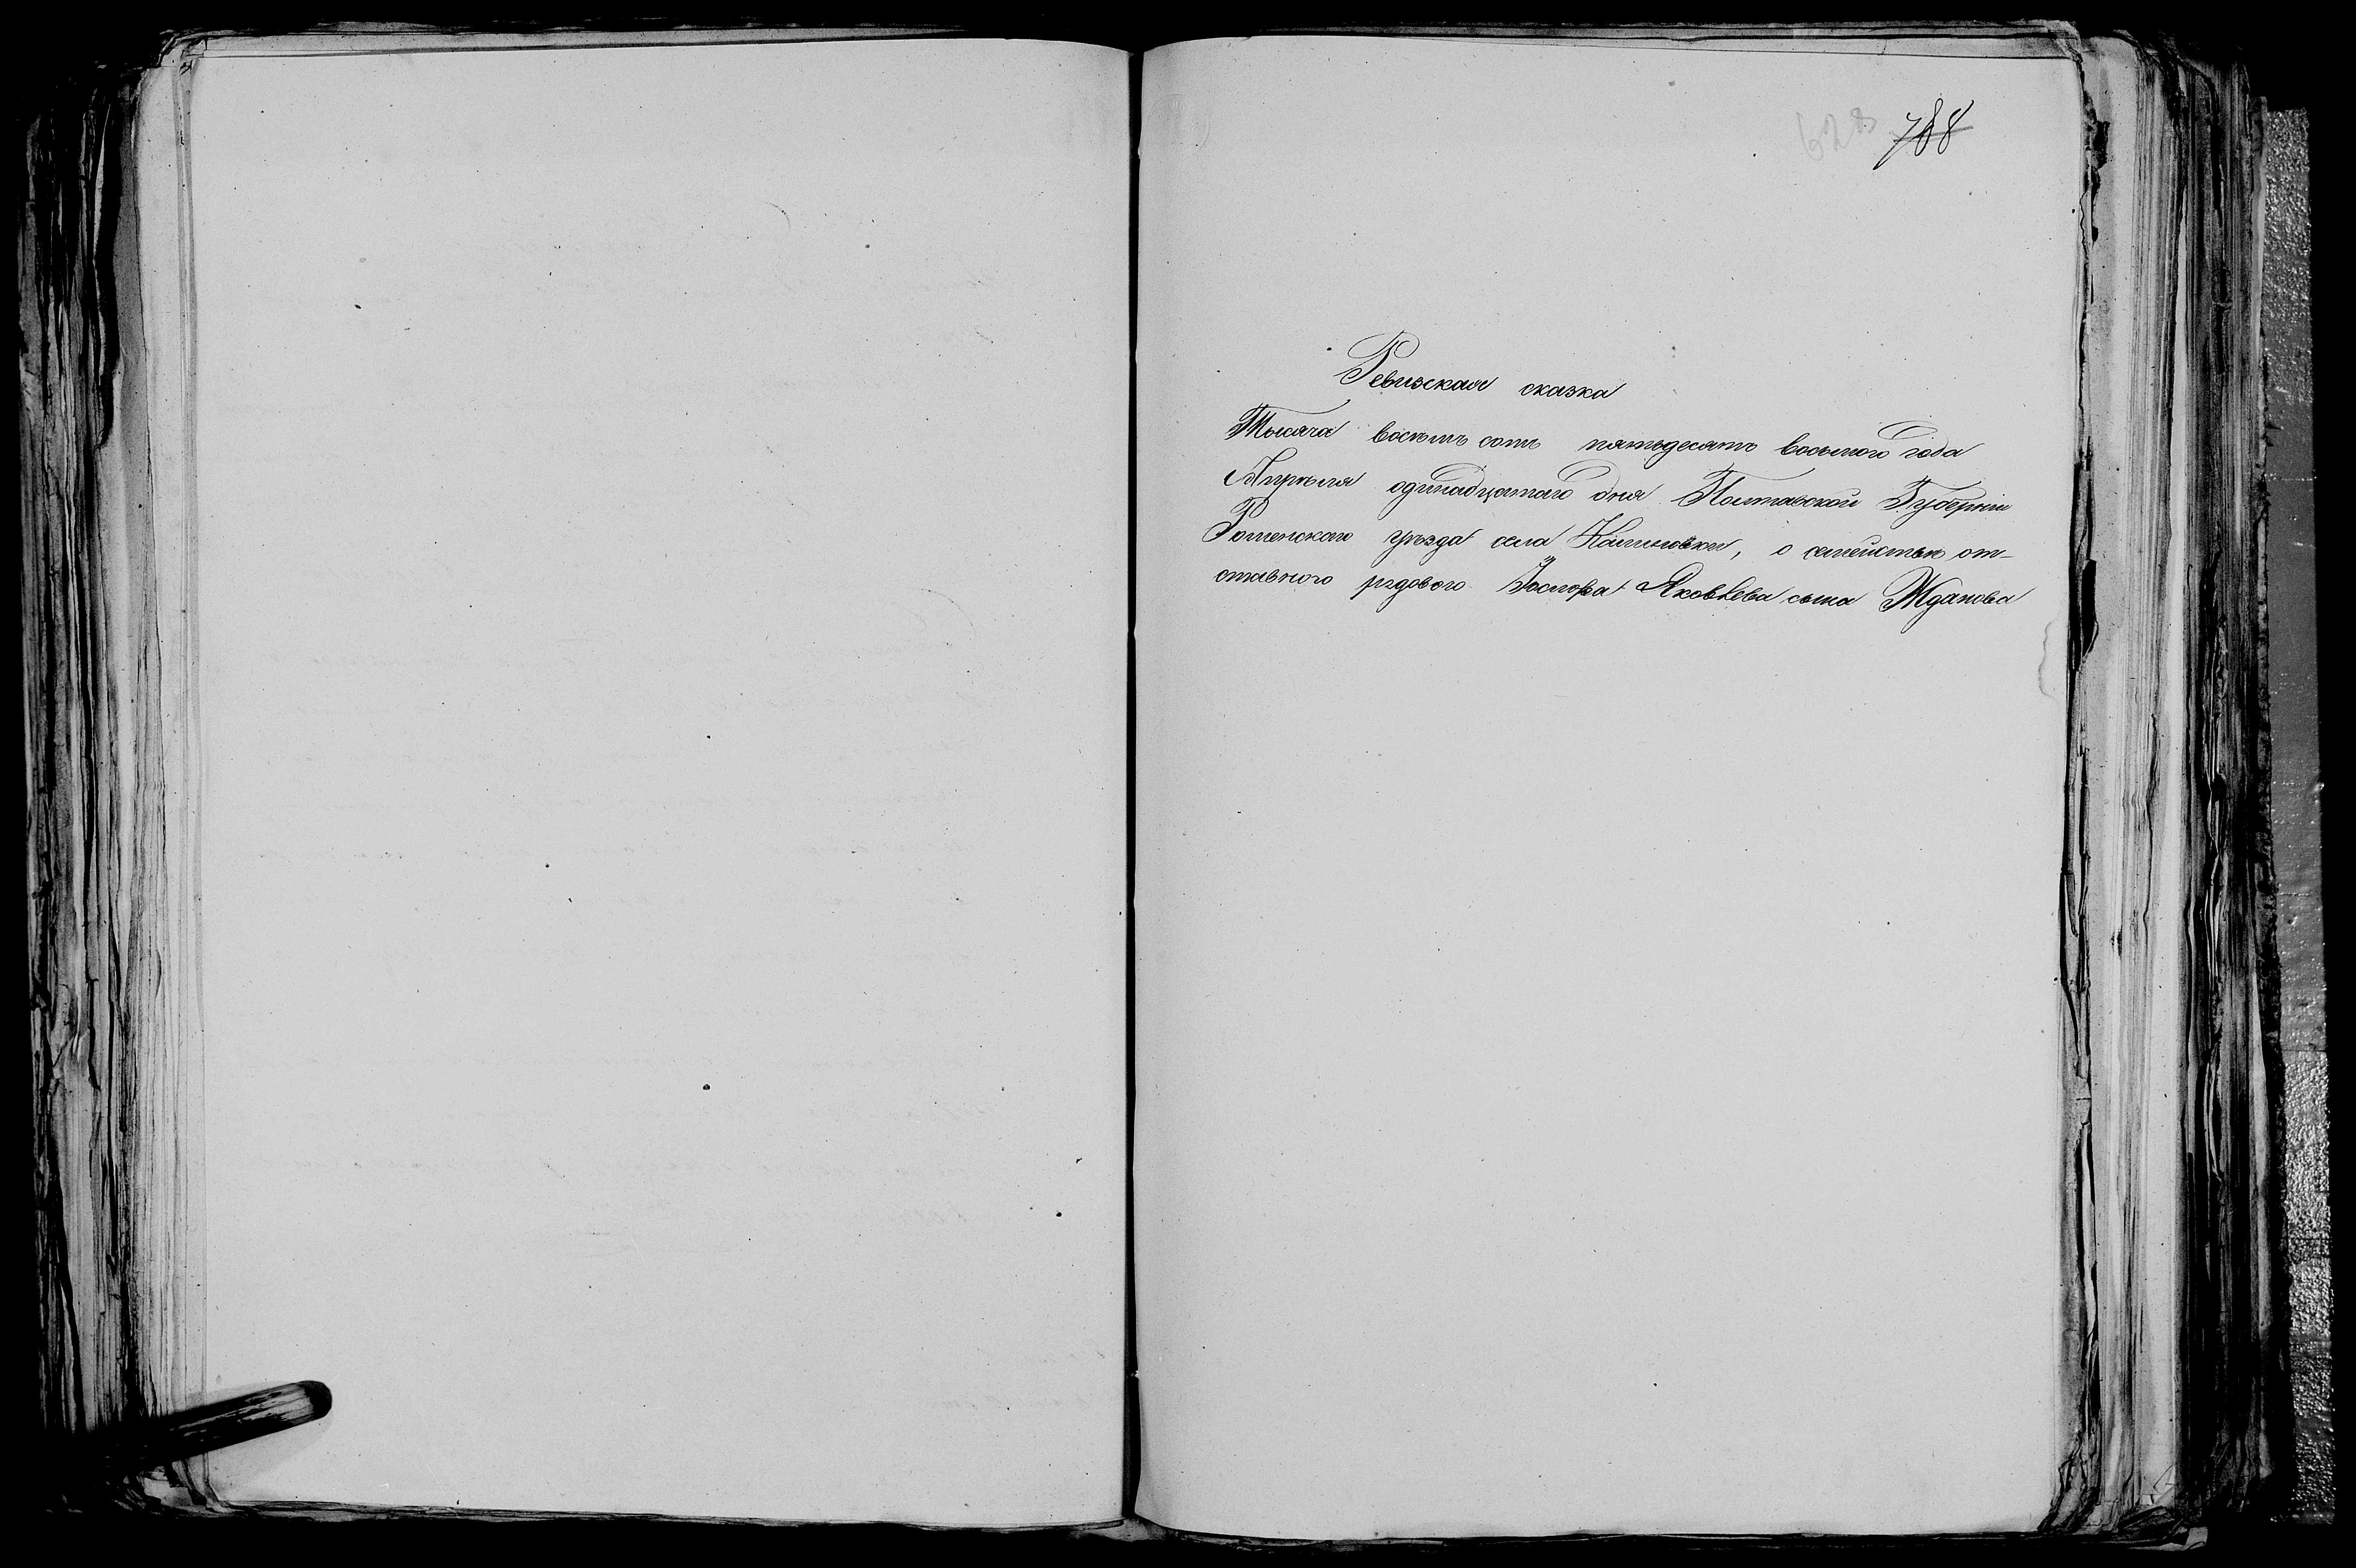 628 788
Ревизская сказка
Тысяча восемь сотъ пятьдесятъ восьмого года
Апрѣля одинадцатого дня Полтавской Губерніи
Роменского уѣзда села Калиновки, о семействѣ от-
ставного рядового Яковлева сына Жданова